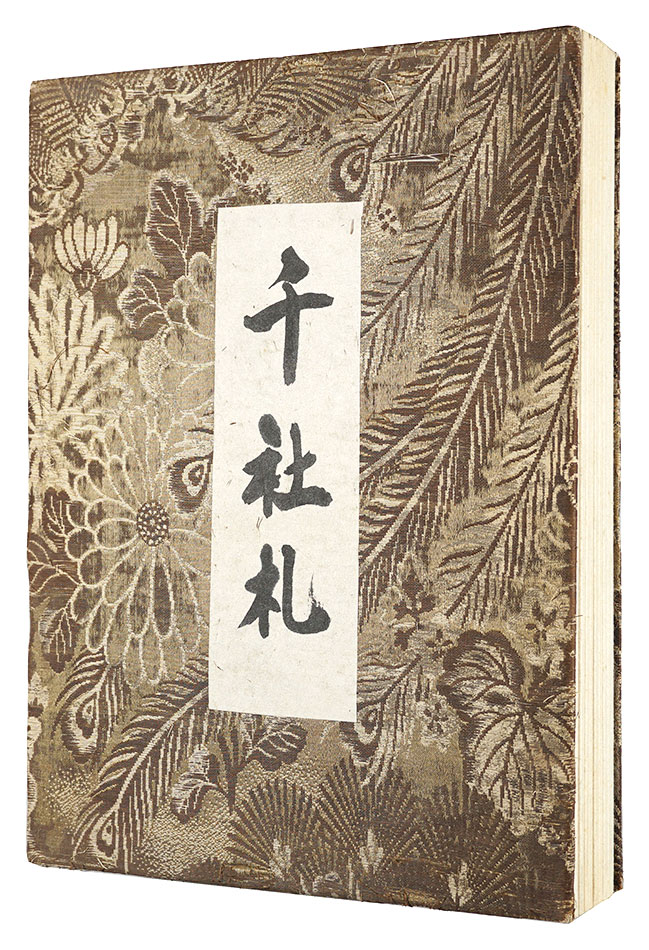 千社札